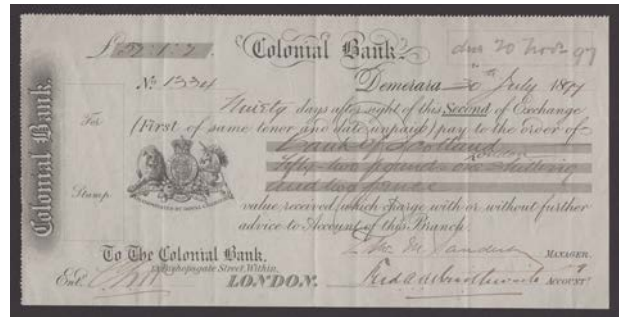 £52:1:2. Colonial Bank. due 20 Nov 97
No. 1334 Demerara 30th July 1897
Colonial Bank.
For
Stamp.
Ninety days after sight of this Second of Exchange
(First of same tenor and date unpaid) pay to the order of
Bank of Scotland
London
fifty-two pounds one shilling
and two pence
value received, which charge with or without further
advice to Account of this Branch.
To The Colonial Bank.
Bishopsgate Street Within,
LONDON.
MANAGER.
Ent.
ACCOUNTT